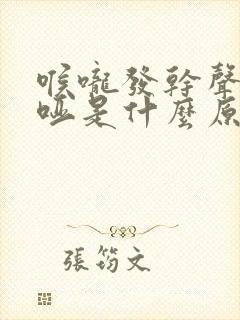 喉嚨發幹聲
啞是什麼原
張筠文